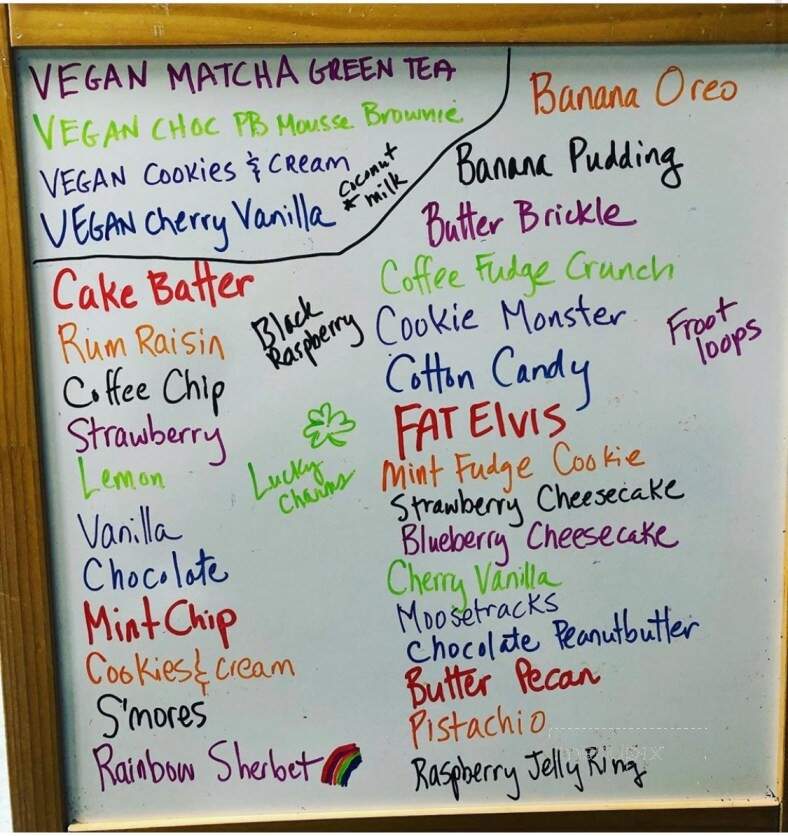 VEGAN MATCHA GREEN TEA
VEGAN CHOC PB Mousse Brownie
VEGAN Cookies & CREAM
VEGAN Cherry Vanilla
* coconut
milk
Cake Batter
Rum Raisin
Coffee Chip
Strawberry
Lemon
Vanilla
Chocolate
Mint Chip
Cookies & Cream
S'mores
Rainbow Sherbet
Black
Raspberry
Lucky
Charms
Banana Oreo
Banana Pudding
Butter Brickle
Coffee Fudge Crunch
Cookie Monster
Cotton Candy
FAT ELVIS
Mint Fudge Cookie
Strawberry Cheesecake
Blueberry Cheesecake
Cherry Vanilla
Moosetracks
Chocolate Peanutbutter
Butter Pecan
Pistachio
Raspberry Jelly Ring
Froot
loops